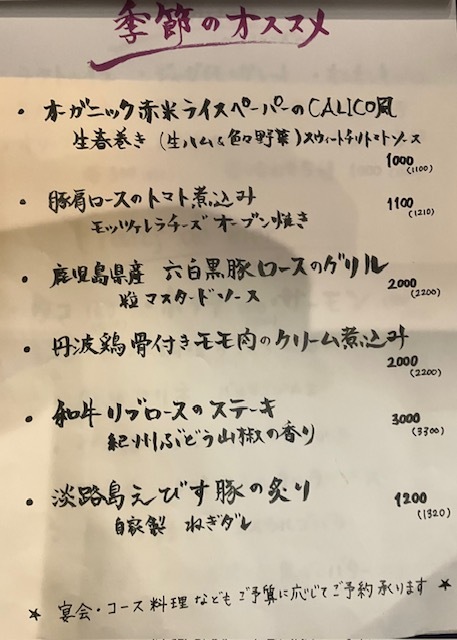 季節のオススメ
・オーガニック赤米ライスペーパーのCALICO風
生春巻き(生ハム&色々野菜)スウィートチリトマトソース
1000
(1100)
・豚肩ロースのトマト煮込み 1100
(1210)
モッツァレラチーズオーブン焼き
・鹿児島県産 六白黒豚ロースのグリル
2000
粒マスタードソース (2200)
・丹波鶏骨付きモモ肉のクリーム煮込み
2000
(2200)
・和牛リブロースのステーキ 3000
紀州ぶどう山椒の香り (3300)
・淡路島えびす豚の炙り 1200
自家製 ねぎダレ (1320)
★ 宴会・コース料理などもご予算に応じてご予約承ります ★